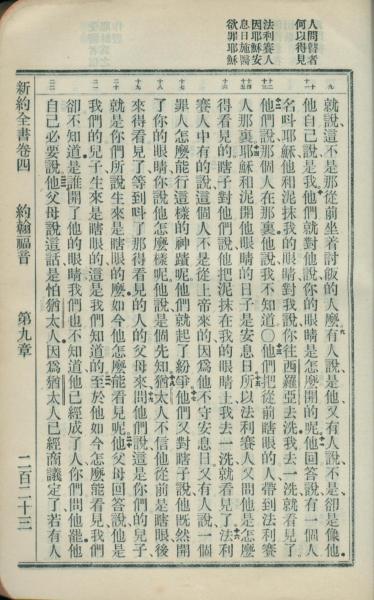 人問瞽者
何以得見
法利賽人
因耶穌安
息日施醫
欲罪耶穌
就說這不是那從前坐着討飯的人麼有人說是他又有人說不是卻是像他
他自己說是我他們就對他說你的眼睛是怎麼開的呢他回答說有一個人
名叫耶穌他和泥抹我的眼睛對我說你往西羅亞去洗我去一洗就看見了
他們說那個人在那裏他說我不知道○他們把從前瞎眼的人帶到法利賽
人那裏耶穌和泥開他眼睛的日子是安息日所以法利賽人又問他是怎麼
得看見的瞎子對他們說他把泥抹在我的眼睛上我去一洗就看見了法利
賽人中有的說這個人不是從上帝來的因爲他不守安息日又有人說一個
罪人怎麼能行這樣的神蹟呢他們就起了紛爭他們又對瞎子說他既然開
了你的眼睛你說他怎麼樣呢他說是個先知猶太人不信他從前是瞎眼後
來得看見了等到叫了那得看見的人的父母來問他們說這是你們的兒子
就是你們所說生來是瞎眼的麼如今他怎麼能看見呢他父母回答說他是
我們的兒子生來是瞎眼的這是我們知道的至於他如今怎麼能看見我們
卻不知道是誰開了他的眼睛我們也不知道他已經成了人你們問他罷他
自己必要說他父母說這話是怕猶太人因爲猶太人已經商議定了若有人
新約全書卷四 約翰福音 第九章 二百二十三